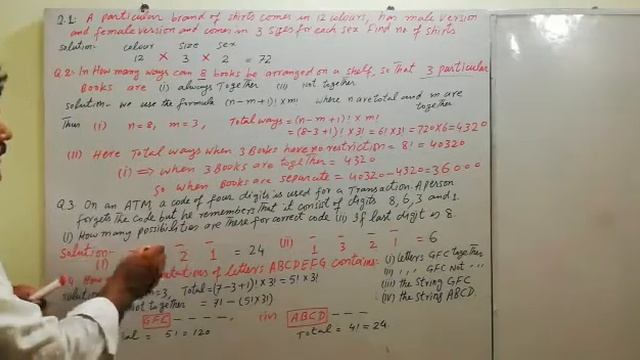 Q.1: A particular brand of shirts comes in 12 colours, has male version
and female version and comes in 3 sizes for each sex Find no of shirts
solution- colour size sex
12 × 3 × 2 = 72
Q.2: In How many ways can 8 books be arranged on a shelf, so That 3 particular
Books are (i) always Together (ii) not together
solution- we use the formula (n-m+1)! × m! where n are total and m are together
Thus (i) n=8, m=3, Total ways = (n-m+1)! × m!
= (8-3+1)! × 3! = 6! × 3! = 720×6 = 4320
(ii) Here Total ways when 3 Books have no restriction = 8! = 40320
(i) ⇒ when 3 Books are together = 4320
So when Books are separate = 40320-4320 = 36000
Q.3 On an ATM a code of four digits is used for a Transaction. A person
forgets the code but he remembers that it consist of digits 8, 6, 3 and 1.
(i) How many possibilities are these for correct code (ii) If last digit is 8.
Solution- 2 1 = 24 (ii) 1 3 2 1 = 6
(i)
Q.4 of letters ABCDEFG contains (i) letters GFC together
m=3, Total = (7-3+1)! × 3! = 5! × 3! (ii) ,, ,, GFC not ,,
not together = 7! - (5!×3!) (iii) the string GFC
(iv) the string ABCD.
GFC - - - - (iv) ABCD - - -
= 5! = 120 Total = 4! = 24.